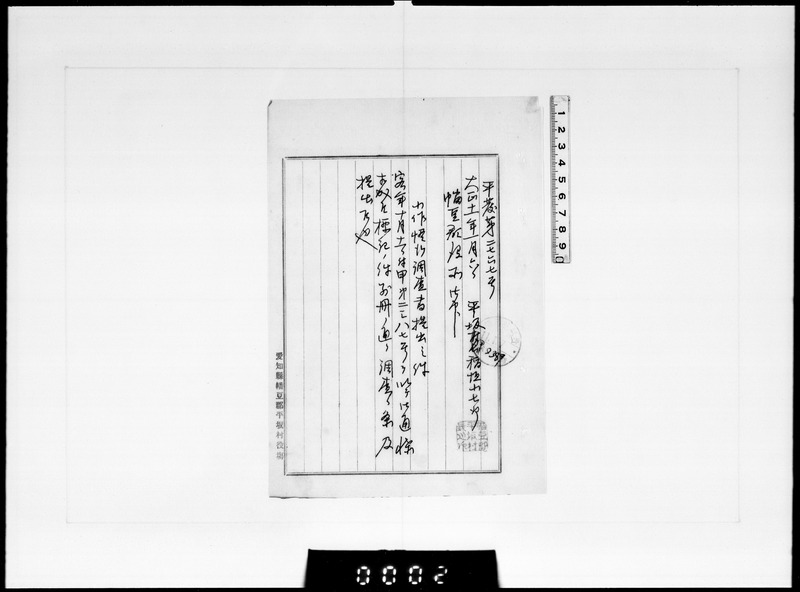 平発第二七六七号
大正十一年一月六日 平坂村
幡豆郡役所御中
小作慣行調査書提出之件
客年十月十二日付甲第二三八七号ヲ以テ御通牒
相成候標記ノ件別冊ノ通リ調査候条及
提出候也
愛知縣幡豆郡平坂村役場
1 2 3 4 5 6 7 8 9
0002